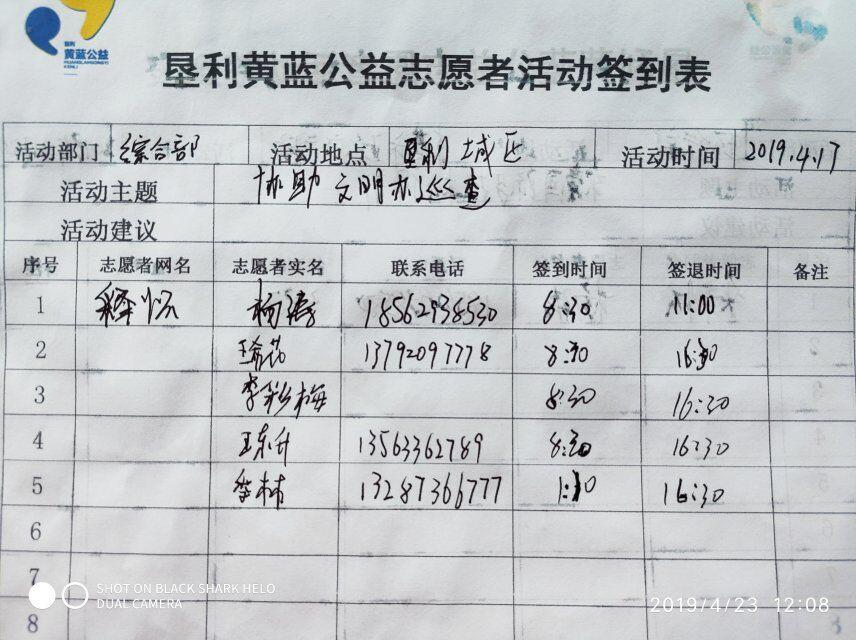 垦利
黄蓝公益
HUANGLANGONGYI
KENLI
垦利黄蓝公益志愿者活动签到表
活动部门 综合部 活动地点 垦利城区 活动时间 2019.4.17
活动主题 协助文明办巡查
活动建议
序号 志愿者网名 志愿者实名 联系电话 签到时间 签退时间 备注
1 杨涛 18562938530 8:30 11:00
2 13792097778 8:30 16:30
3 李彩梅 8:30 16:30
4 王东升 13563362789 8:30 16:30
5 李林 13287366777 16:30
6
7
8
SHOT ON BLACK SHARK HELO
DUAL CAMERA
2019/4/23 12:08